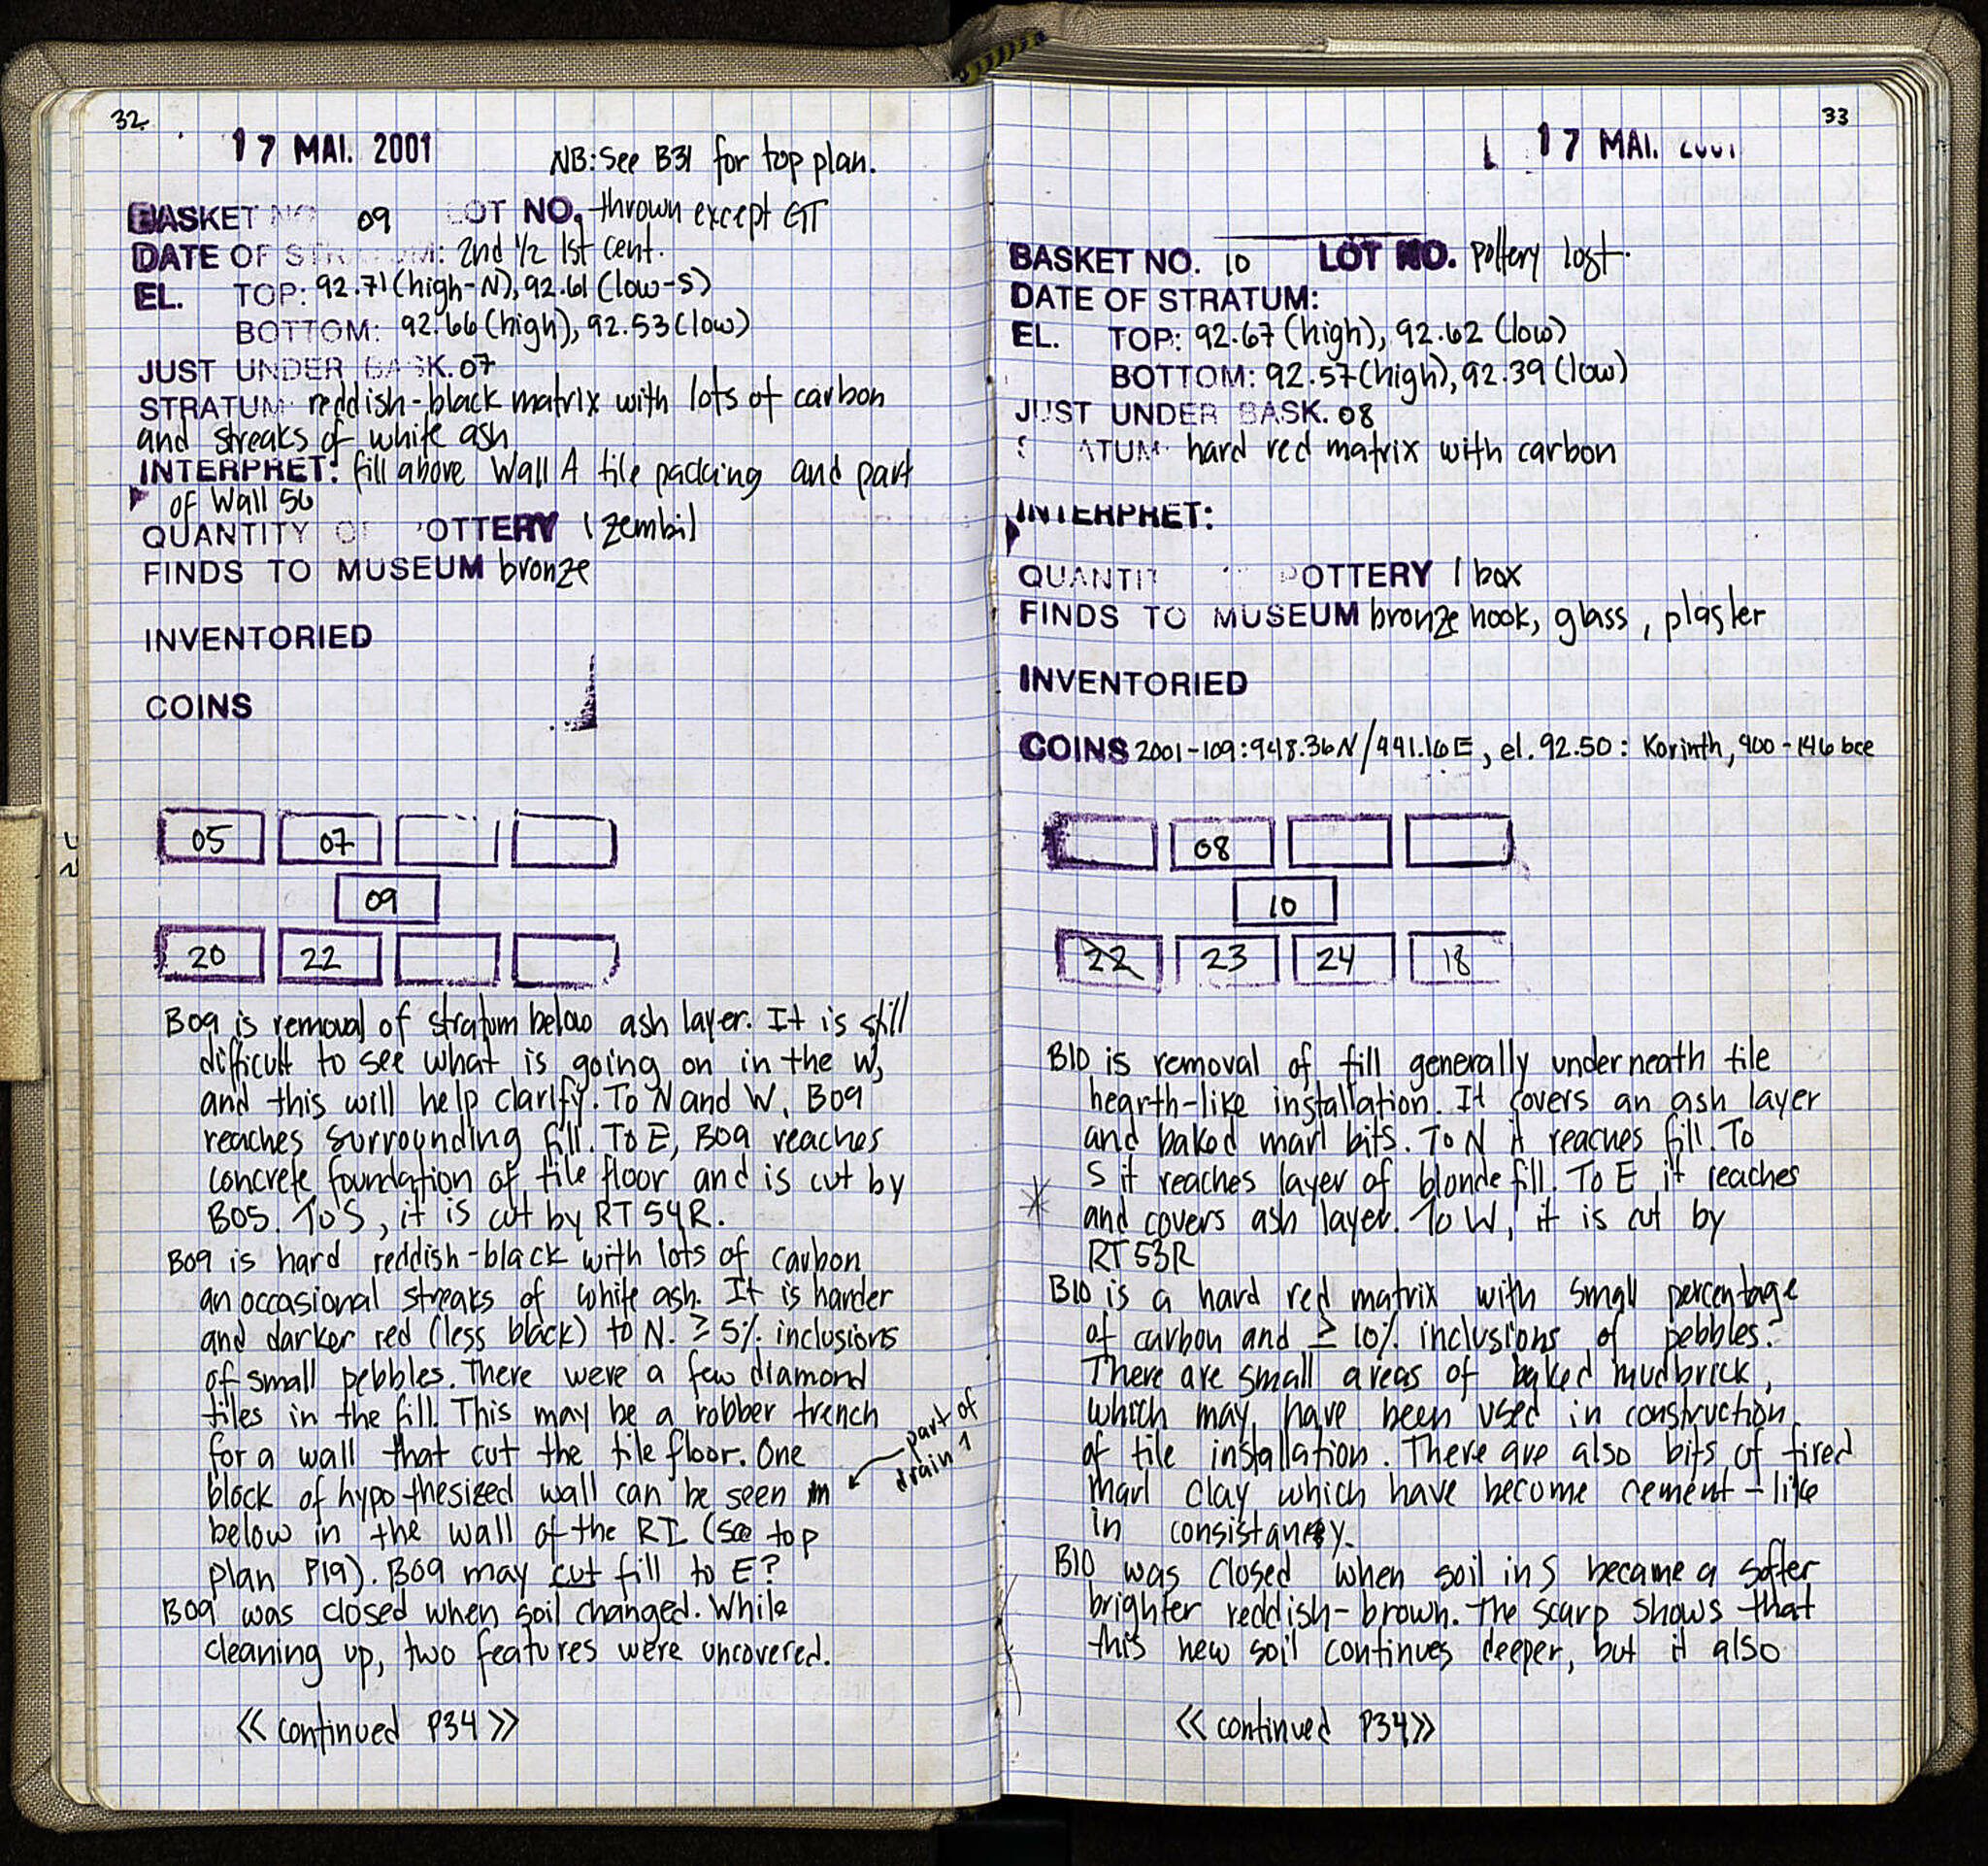 32
17 MAI. 2001
NB: See B31 for top plan.
BASKET NO. 09 LOT NO. thrown except GT
DATE OF STRATUM: 2nd 1/2 1st cent.
EL. TOP: 92.71 (high-N), 92.61 (low-S)
BOTTOM: 92.66 (high), 92.53 (low)
JUST UNDER BASK. 07
STRATUM: reddish-black matrix with lots of carbon
and streaks of white ash
INTERPRET: fill above Wall A tile packing and part
of Wall 56
QUANTITY OF POTTERY 1 zembil
FINDS TO MUSEUM bronze
INVENTORIED
COINS
05 07
09
20 22
B09 is removal of stratum below ash layer. It is still
difficult to see what is going on in the W,
and this will help clarify. To N and W, B09
reaches surrounding fill. To E, B09 reaches
concrete foundation of tile floor and is cut by
B05. To S, it is cut by RT 54R.
B09 is hard reddish-black with lots of carbon
an occasional streaks of white ash. It is harder
and darker red (less black) to N. ≥ 5% inclusions
of small pebbles. There were a few diamond
tiles in the fill. This may be a robber trench
for a wall that cut the tile floor. One
block of hypothesized wall can be seen
part of
drain 1
below in the wall of the RT (see top
plan P19). B09 may cut fill to E?
B09 was closed when soil changed. While
cleaning up, two features were uncovered.
<< continued P34 >>
33
17 MAI. 2001
BASKET NO. 10 LOT NO. pottery lost.
DATE OF STRATUM:
EL. TOP: 92.67 (high), 92.62 (low)
BOTTOM: 92.57 (high), 92.39 (low)
JUST UNDER BASK. 08
STRATUM: hard red matrix with carbon
INTERPRET:
QUANTITY OF POTTERY 1 box
FINDS TO MUSEUM bronze hook, glass, plaster
INVENTORIED
COINS 2001-109: 948.36N/441.16E, el. 92.50: Korinth, 400-146 bce
08
10
22 23 24 18
B10 is removal of fill generally underneath tile
hearth-like installation. It covers an ash layer
and baked marl bits. To N it reaches fill. To
S it reaches layer of blonde fill. To E it reaches
* and covers ash layer. To W, it is cut by
RT 53R
B10 is a hard red matrix with small percentage
of carbon and ≥ 10% inclusions of pebbles.
There are small areas of baked mudbrick,
which may have been used in construction
of tile installation. There are also bits of fired
marl clay which have become cement-like
in consistancy.
B10 was closed when soil in S became a softer
brighter reddish-brown. The scarp shows that
this new soil continues deeper, but it also
<< continued P34 >>